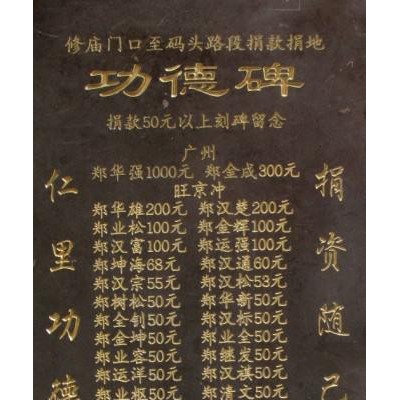 修庙门口至码头路段捐款捐地
功德碑
捐款50元以上刻碑留念
广州
郑华强1000元 郑金成300元
旺京冲
郑华雄200元 郑汉楚200元
郑业松100元 郑金辉100元
郑汉富100元 郑运强100元
郑坤海68元 郑汉通60元
郑汉宗55元 郑汉松53元
郑树松50元 郑华新50元
郑全钊50元 郑汉标50元
郑金坤50元 郑业全50元
郑业容50元 郑继发50元
郑运洋50元 郑汉祺50元
郑业枢50元 郑清文50元
仁里功德
捐资随己